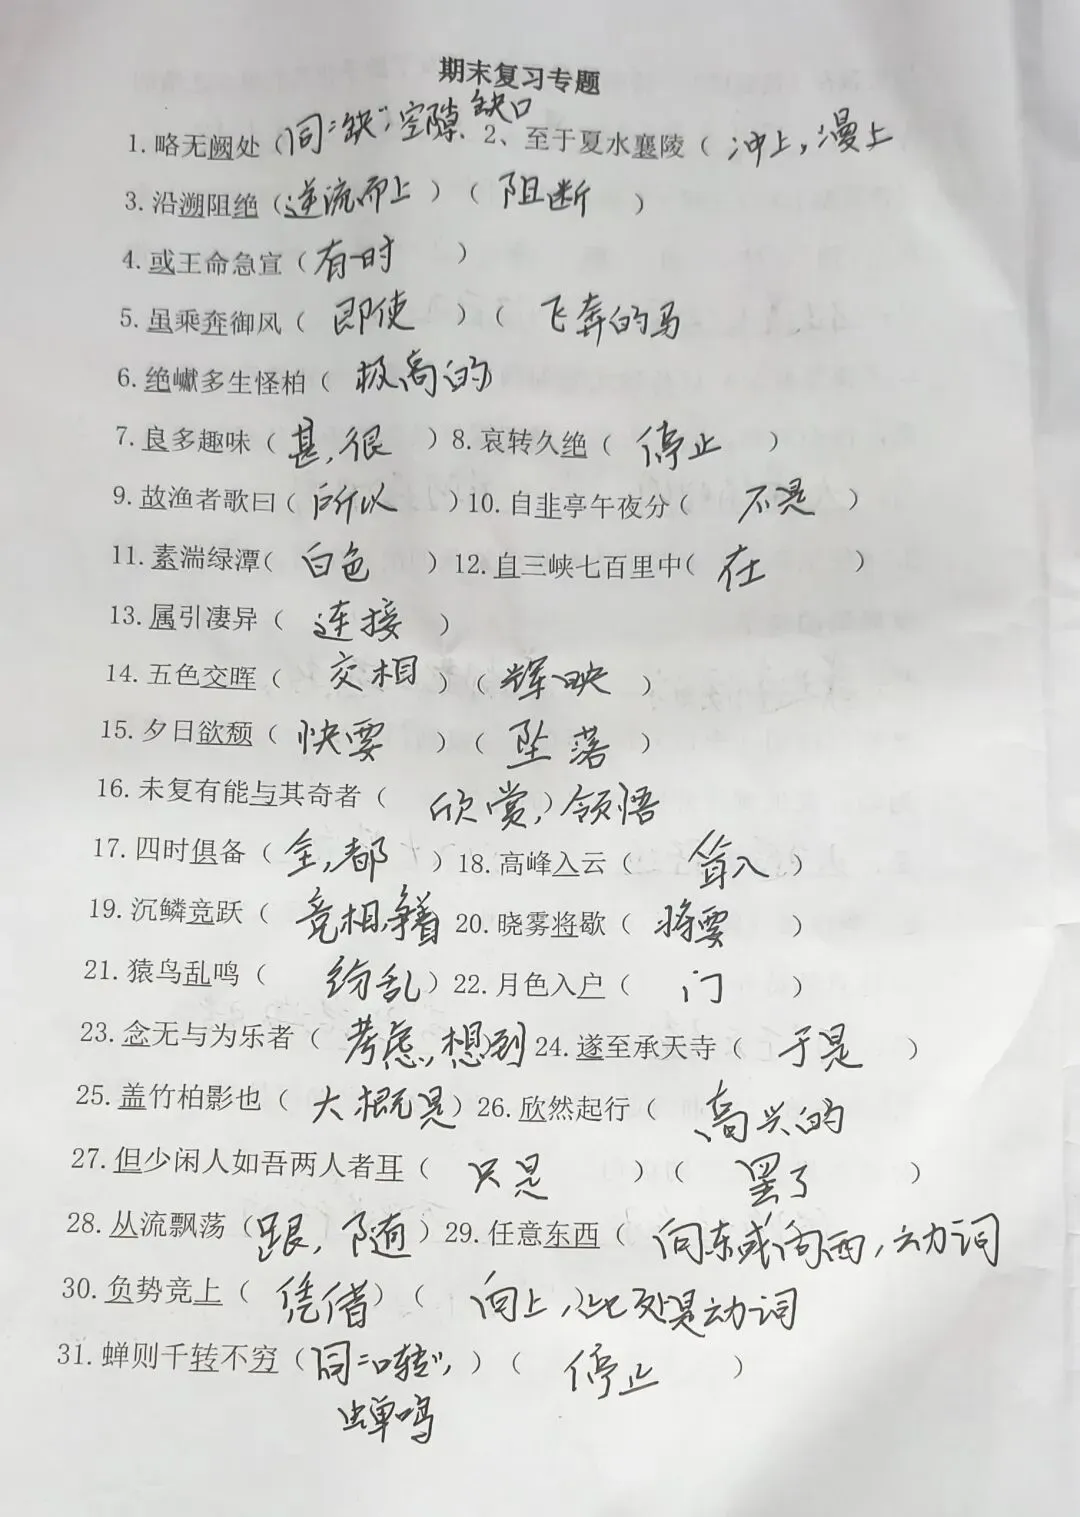 期末复习专题
1.略无阙处（同"缺",空隙、缺口 2、至于夏水襄陵（冲上,漫上
3.沿溯阻绝（逆流而上）（阻断）
4.或王命急宣（有时）
5.虽乘奔御风（即使）（飞奔的马
6.绝巘多生怪柏（极高的
7.良多趣味（甚,很）8.哀转久绝（停止）
9.故渔者歌曰（所以）10.自非亭午夜分（不是）
11.素湍绿潭（白色）12.自三峡七百里中（在）
13.属引凄异（连接）
14.五色交晖（交相）（辉映）
15.夕日欲颓（快要）（坠落）
16.未复有能与其奇者（欣赏,领悟
17.四时俱备（全,都）18.高峰入云（耸入）
19.沉鳞竞跃（竞相,争着 20.晓雾将歇（将要）
21.猿鸟乱鸣（纷乱）22.月色入户（门）
23.念无与为乐者（考虑,想到 24.遂至承天寺（于是）
25.盖竹柏影也（大概是）26.欣然起行（高兴的
27.但少闲人如吾两人者耳（只是）（罢了）
28.从流飘荡（跟,随）29.任意东西（向东或向西,动词
30.负势竞上（凭借）（向上,此处是动词
31.蝉则千转不穷（同"啭",）（停止）
蝉鸣